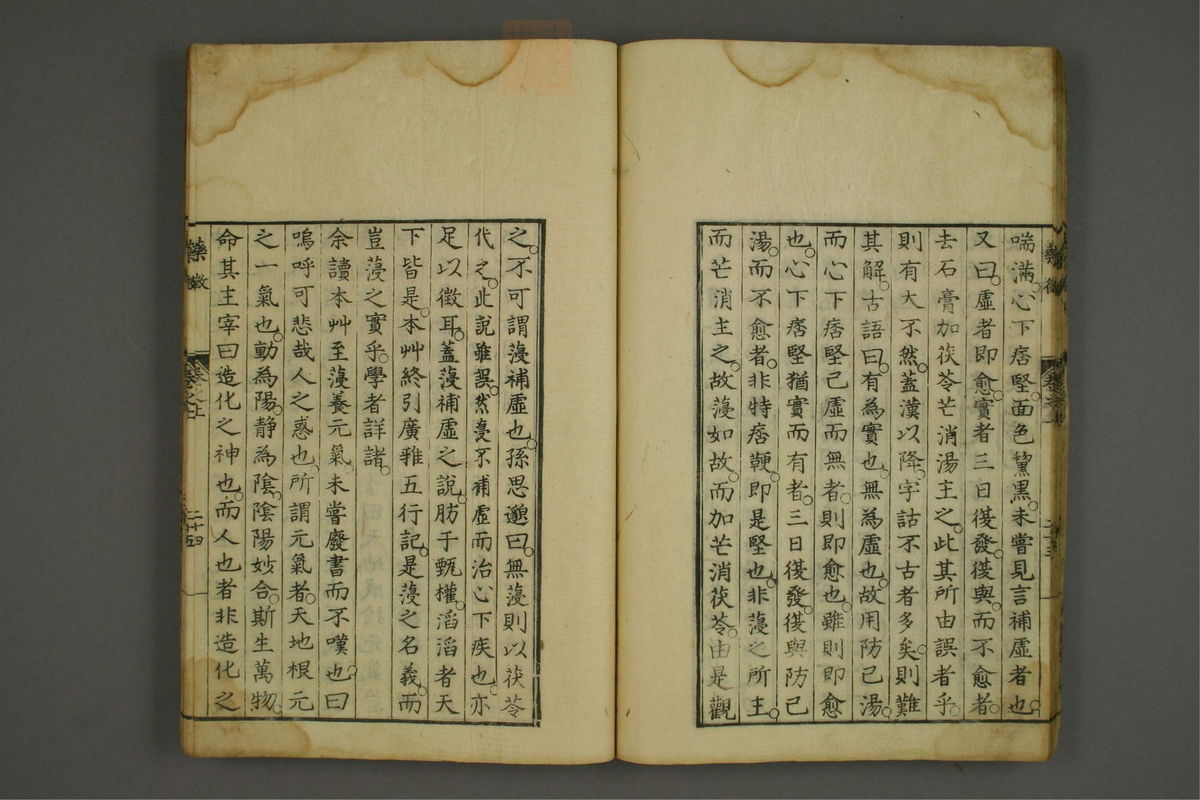 喘滿心下痞堅面色黧黒未嘗見言補虛者也
又曰虛者即愈實者三日復發復與而不愈者
去石膏加茯苓芒消湯主之此其所由誤者乎
則有大不然蓋漢以降字詁不古者多矣則難
其解古語曰有為實也無為虛也故用防己湯
而心下痞堅已虛而無者則即愈也雖則即愈
也心下痞堅猶實而有者三日復發復與防己
湯而不愈者非特痞鞕即是堅也非葠之所主
而芒消主之故葠如故而加芒消茯苓由是觀
之不可謂葠補虛也孫思邈曰無葠則以茯苓
代之此說雖誤然葠不補虛而治心下疾也亦
足以徵耳蓋葠補虛之說肪于甄權滔滔者天
下皆是本艸終引廣雅五行記是葠之名義而
豈葠之實乎學者詳諸
余讀本艸至葠養元氣未嘗廢書而不嘆也曰
嗚呼可悲哉人之惑也所謂元氣者天地根元
之一氣也動為陽静為陰陰陽妙合斯生萬物
命其主宰曰造化之神也而人也者非造化之
藥徵
卷之上
二十四